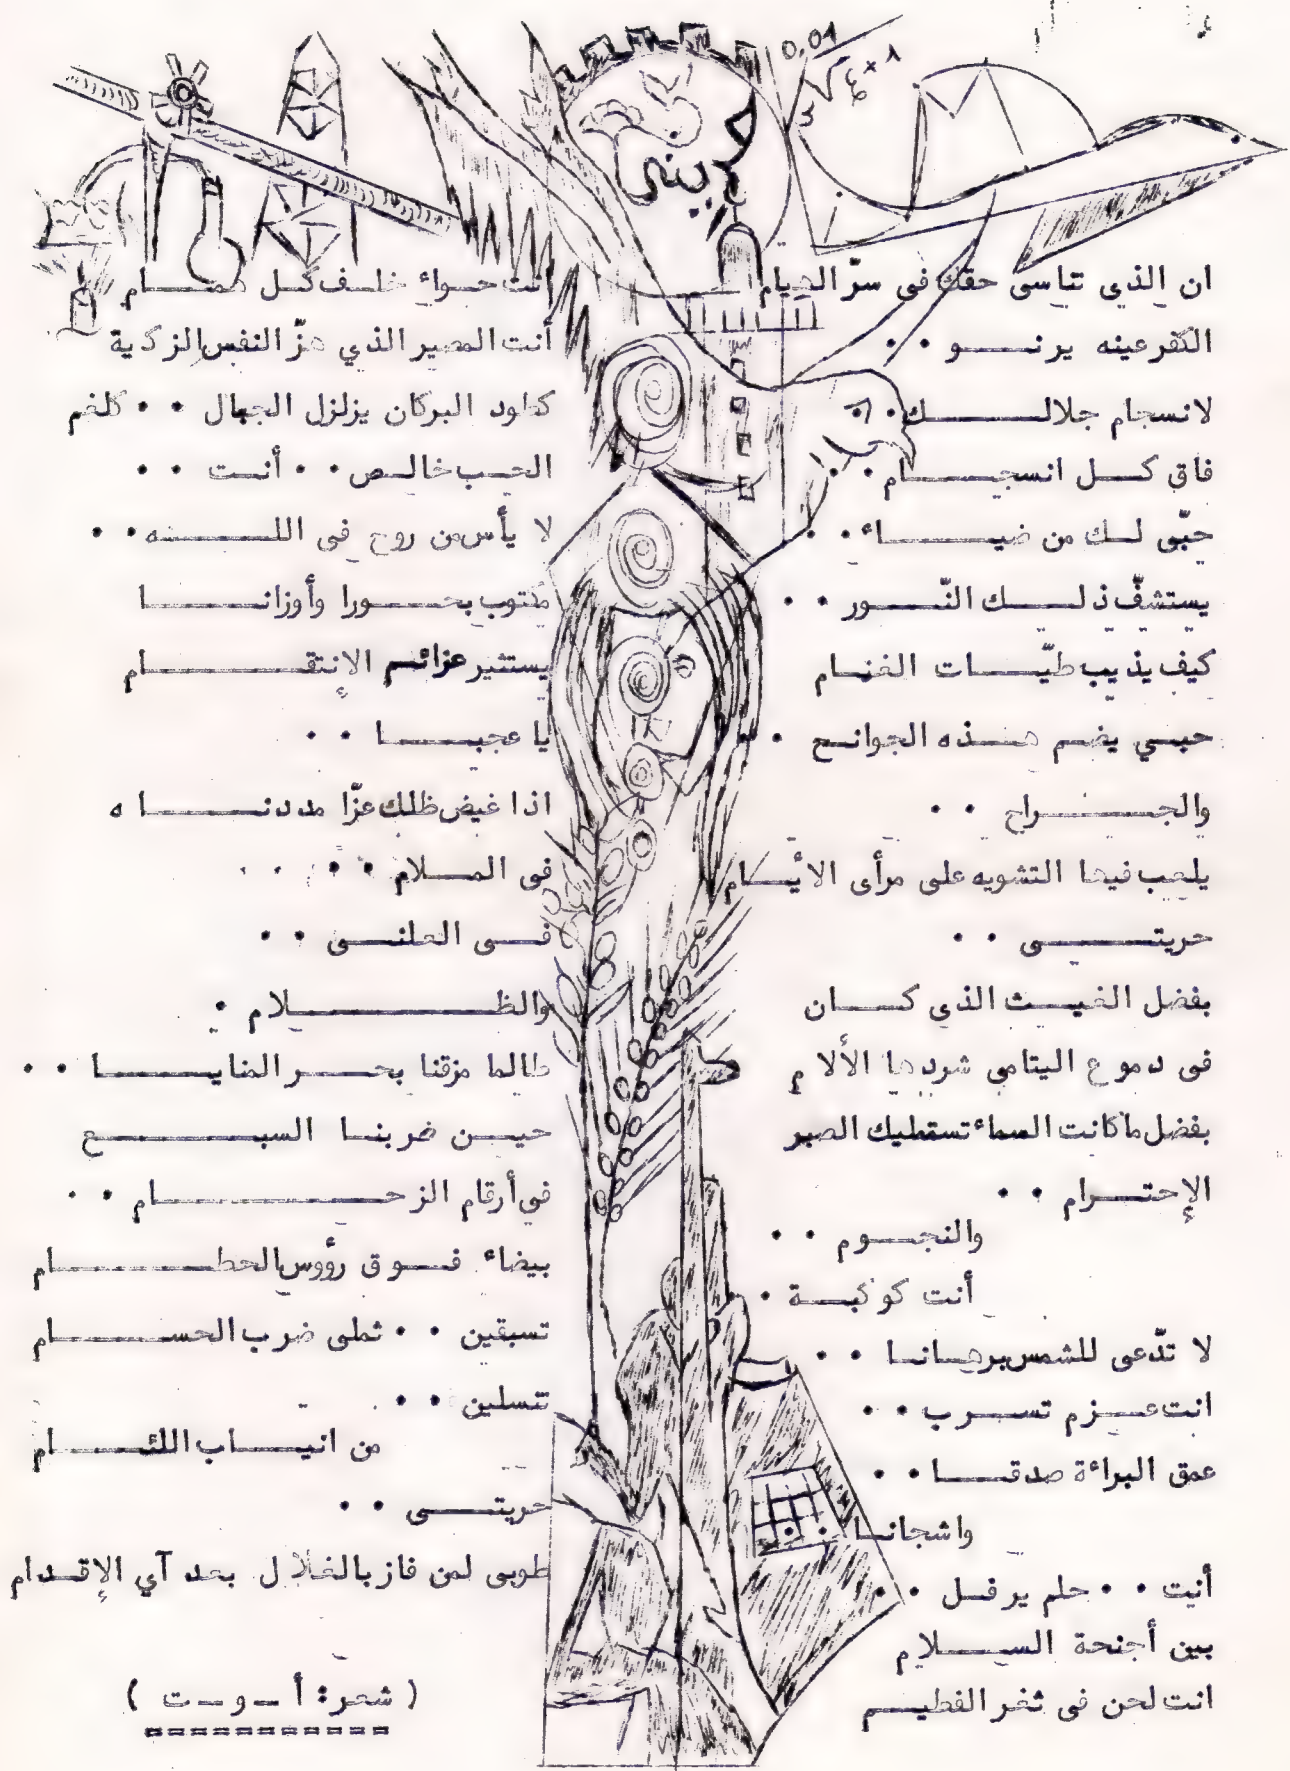 حريتي
0,01
ان الذي تناسى حقك في سرّ الهيام
الكفر عينه يرنو ..
لانسجام جلالك ..
فاق كل انسجام ..
حبّي لك من ضياء ..
يستشفّ ذلك النّور ..
كيف يذيب طيّات الغمام
حبي يضم هذه الجوانح ..
والجراح ..
يلعب فيها التشويه على مرأى الأيّام
حريتي ..
بفضل الغيث الذي كان
في دموع اليتامى شردها الألام
بفضل ما كانت السماء تستعطيك الصبر
الإحترام ..
والنجوم ..
أنت كوكبة .
لا تدّعي للشمس برهانا ..
انت عزم تسرب ..
عمق البراءة صدقا ..
واشجانا ..
أنت .. حلم يرفل ..
بين أجنحة السلام
انت لحن في ثغر الفطيم
انت حواء خلف كل همام
أنت المصير الذي هزّ النفس الزكية
كطود البركان يزلزل الجبال .. كلغم
الحب خالص .. أنت ..
لا يأس من روح في الله ..
مكتوب بحورا وأوزانا
يستثير عزائم الإنتقام
يا عجبا ..
اذا غيض ظلك عزّا مددناه
في الملام ..
في العلني ..
والظلام .
طالما مزقنا بحر المنايا ..
حين ضربنا السبع
في أرقام الزحام ..
بيضاء فوق رؤوس الحطام
تسبقين .. ثملى ضرب الحسام
تتسلين ..
من انياب اللئام
حريتي ..
طوبى لمن فاز بالغلال بعد آي الإقدام
( شعر : أ - و - ت )